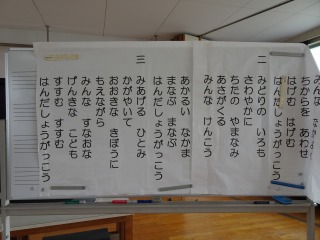 みんな
ちからを あわせ
はげむ はげむ
はんだしょうがっこう
二
みどりの いろも
さわやかに
ちたの やまなみ
あさがくる
みんな けんこう
あかるい なかま
まなぶ まなぶ
はんだしょうがっこう
三
みあげる ひとみ
かがやいて
おおきな きぼうに
もえながら
みんな すなおな
げんきな こども
すすむ すすむ
はんだしょうがっこう